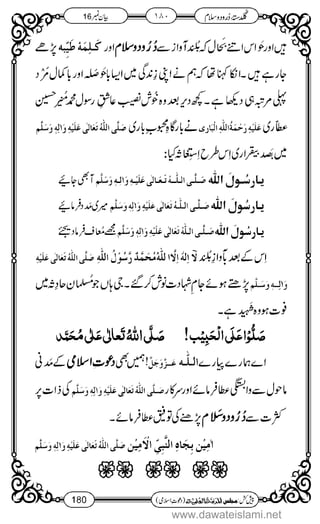 گلدستۂ درود و سلام ۱۸۰ بیان نمبر 16
ہیں اور وُہ اس اتنے بُلند آواز سے دُرُود و سلام اور کَلِمَۂ طَیِّبہ پڑھے
جارہے ہیں۔ ان کا کہنا تھا کہ ہم نے اپنی زندگی میں ایسا باحوصلہ اور باکمال مَرد
پہلی مرتبہ ہی دیکھا ہے۔ کچھ دیر بعد وہ خوش نصیب عاشقِ رسول محمد مُنیر حسین
عطّاری عَلَیْہِ رَحْمَۃُ اللّٰہِ الْبَارِی نے بارگاہِ محبوبِ باری صَلَّی اللّٰہُ تَعَالٰی عَلَیْہِ وَاٰلِہٖ وَسَلَّم
میں بصد بیقراری اِس طرح اِسْتِغاثہ کیا:
یارسولَ اللّٰہ صَلَّی اللّٰہُ تَعَالٰی عَلَیْہِ وَاٰلِہٖ وَسَلَّم آ بھی جائیے
یارسولَ اللّٰہ صَلَّی اللّٰہُ تَعَالٰی عَلَیْہِ وَاٰلِہٖ وَسَلَّم میری مدد فرمائیے
یارسولَ اللّٰہ صَلَّی اللّٰہُ تَعَالٰی عَلَیْہِ وَاٰلِہٖ وَسَلَّم مجھے مُعاف فرما دیجئے
اِس کے بعد بآوازِ بُلند لَآ اِلٰہَ اِلَّا اللّٰہُ مُحَمَّدٌ رَّسُوْلُ اللّٰہِ صَلَّی اللّٰہُ تَعَالٰی عَلَیْہِ
وَاٰلِہٖ وَسَلَّم پڑھتے ہوئے جامِ شہادت نوش کر گئے۔ جی ہاں جو مسلمان حادِثہ میں
فوت ہو وہ شہید ہے۔
صَلُّوْا عَلَی الْحَبِیْب! صَلَّی اللّٰہُ تَعَالٰی عَلٰی مُحَمَّد
اے ہمارے پیارے اللّٰہ عَزَّوَجَلَّ! ہمیں بھی دعوتِ اسلامی کے مدنی
ماحول سے وابستگی عطا فرمائے اور سرکار صَلَّی اللّٰہُ تَعَالٰی عَلَیْہِ وَاٰلِہٖ وَسَلَّم کی ذات پر
کثرت سے دُرُود و سلام پڑھنے کی توفیق عطا فرمائے۔
اٰمِیْن بِجَاہِ النَّبِیِّ الْاَمِیْن صَلَّی اللّٰہُ تَعَالٰی عَلَیْہِ وَاٰلِہٖ وَسَلَّم
پیش کش: مجلس المدینۃ العلمیۃ (دعوتِ اسلامی) 180
www.dawateislami.net